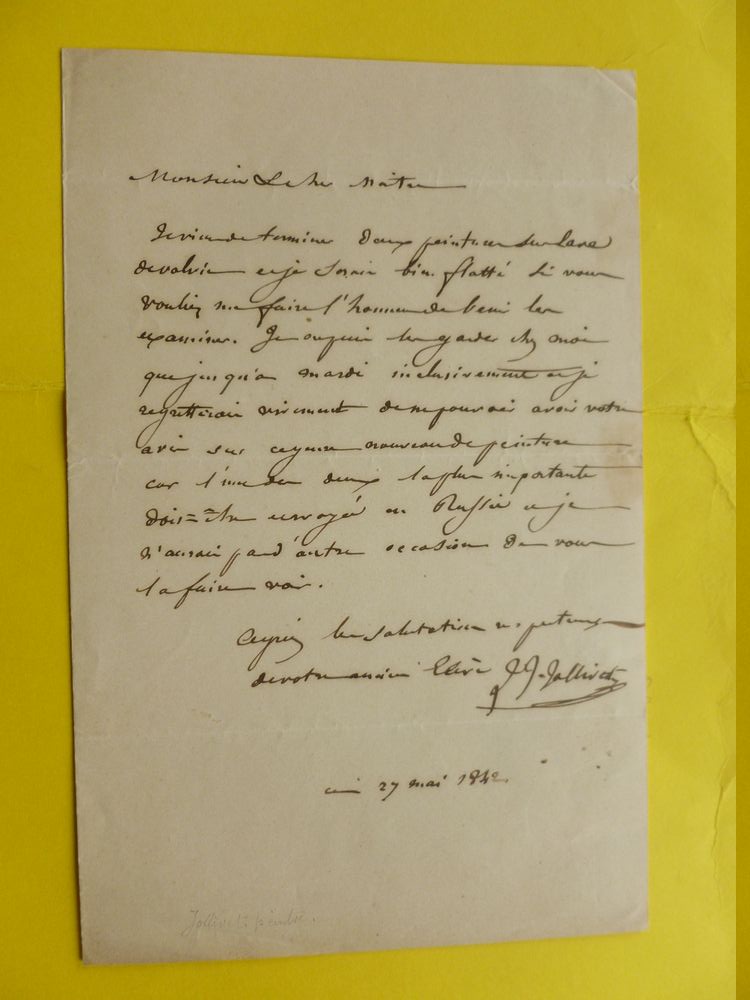 Monsieur Le cher Maître
Je viens de terminer Deux peintures sur Lave
de volvic et je Serais bien flatté si vous
vouliez me faire l'honneur de venir les
examiner. Je ne puis les garder chez moi
que jusqu'a mardi inclusivement et je
regretterais vivement de ne pouvoir avoir votre
avis sur ce genre nouveau de peinture
car l'une des deux la plus importante
doit être envoyée en Russie et je
n'aurais pas d'autre occasion De vous
la faire voir.
Agréez les salutations respectueuses
de votre ancien Elève J J. Jollivet
ce 27 mai 1842
Jollivet peintre.